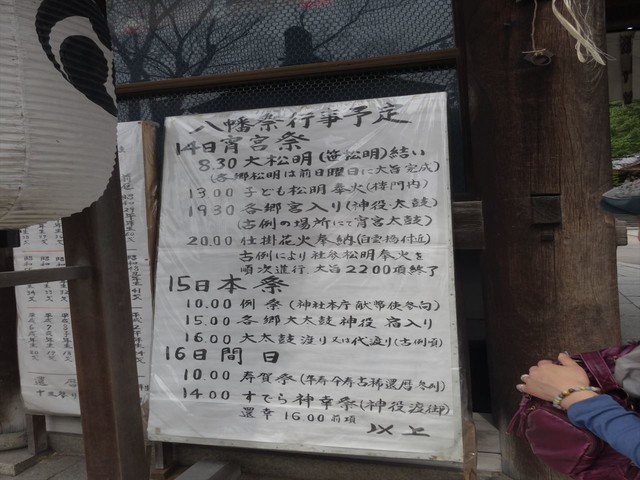 八幡祭行事予定
14日宵宮祭
8.30 大松明(笹松明)結い
(各郷松明は前日曜日に大旨完成)
13.00 子ども松明奉火(楼門内)
19.30 各郷宮入り(神役太鼓)
(古例の場所にて宵宮太鼓)
20.00 仕掛花火奉納(白雲橋付近)
古例により社参松明奉火を
順次進行 大旨 22.00頃終了
15日本祭
10.00 例祭(神社本庁献幣使参向)
15.00 各郷大太鼓神役宮入り
16.00 大太鼓渡り又は代渡り(古例順)
16日間日
10.00 寿賀祭
14.00 すでら神幸祭(神役渡御)
還幸 16.00前項
以上